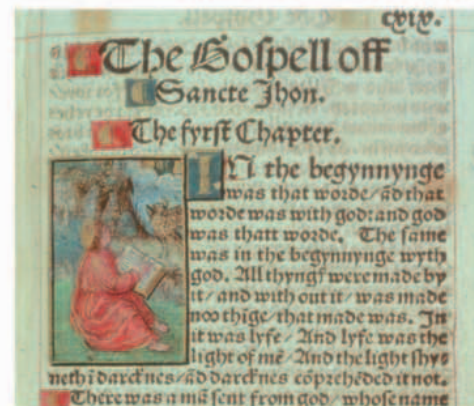 cxix.
The Gospell off
Sancte Jhon.
The fyrst Chapter.
IN the begynnynge
was that worde/ ād that
worde was with god: and god
was thatt worde. The same
was in the begynnynge wyth
god. All thyngꝭ were made by
it/ and with out it/ was made
noo thīge/ that made was. In
it was lyfe/ And lyfe was the
light of mē/ And the light shy⸗
neth ī darcknes/ ād darcknes cōprehēded it not.
There was a mā sent from god/ whose name